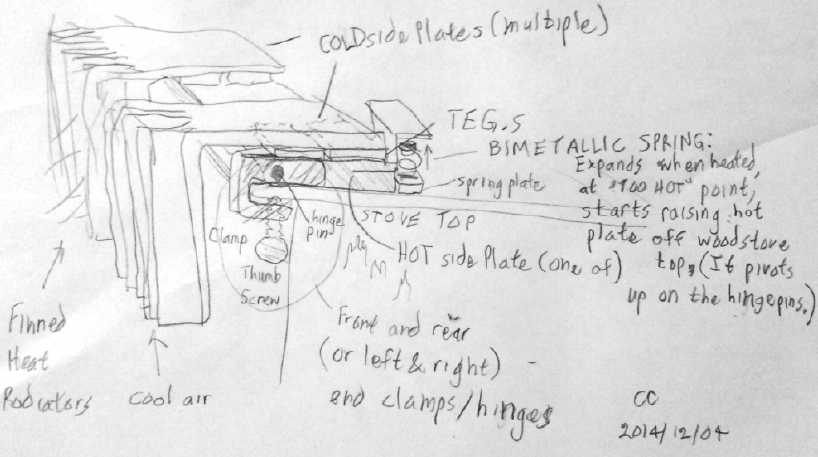 COLDside Plates (multiple)
TEG.S
BIMETALLIC SPRING:
Expands when heated,
at "too HOT" point,
starts raising hot
plate off woodstove
top, (It pivots
up on the hingepins.)
spring plate
hinge
pin
STOVE TOP
Clamp
Thumb
Screw
HOT side Plate (one of)
Front and rear
(or left & right)
end clamps/hinges
Finned
Heat
Radiators
Cool air
CC
2014/12/04